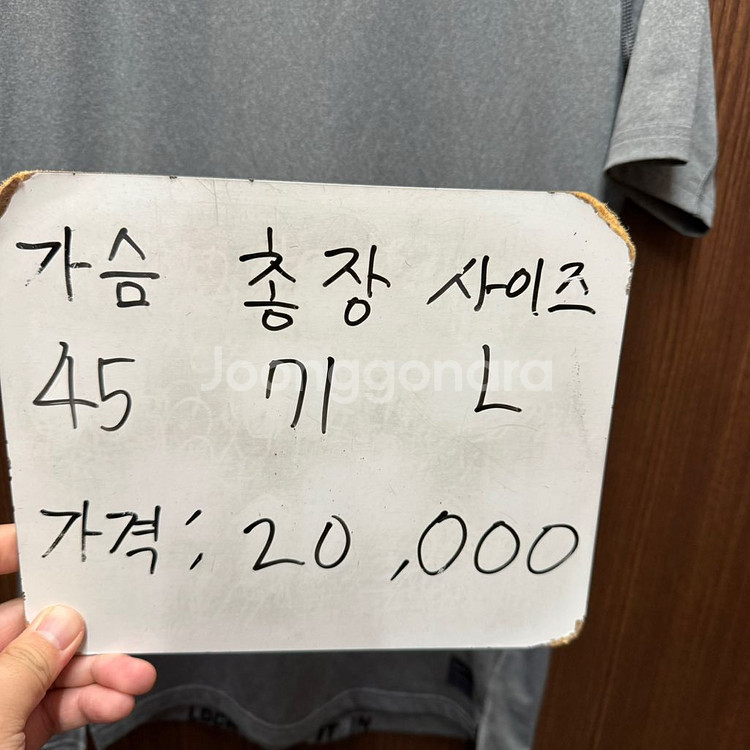 가슴 총장 사이즈
45 71 L
Joonggonara
가격; 20,000